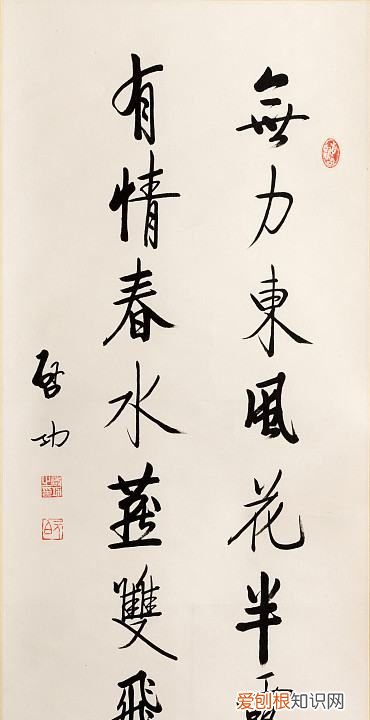 無力東風花半露
有情春水燕雙飛
啓功
爱刨根知识网